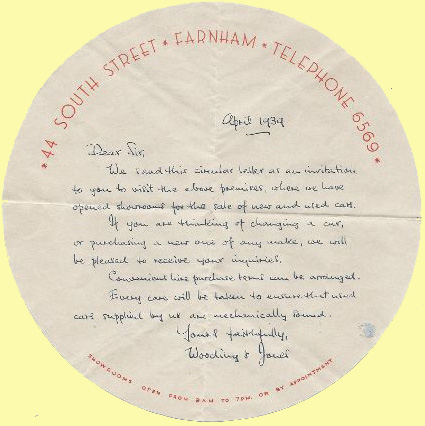 * 44 SOUTH STREET * FARNHAM * TELEPHONE 6569 *
April 1939
Dear Sir,
We send this circular letter as an invitation
to you to visit the above premises, where we have
opened showrooms for the sale of new and used cars.
If you are thinking of changing a car,
or purchasing a new one of any make, we will
be pleased to receive your inquiries.
Convenient hire purchase terms can be arranged.
Every care will be taken to ensure that used
cars supplied by us are mechanically sound.
Yours faithfully,
Wooding & Jones
SHOWROOMS OPEN FROM 8AM TO 7PM. OR BY APPOINTMENT